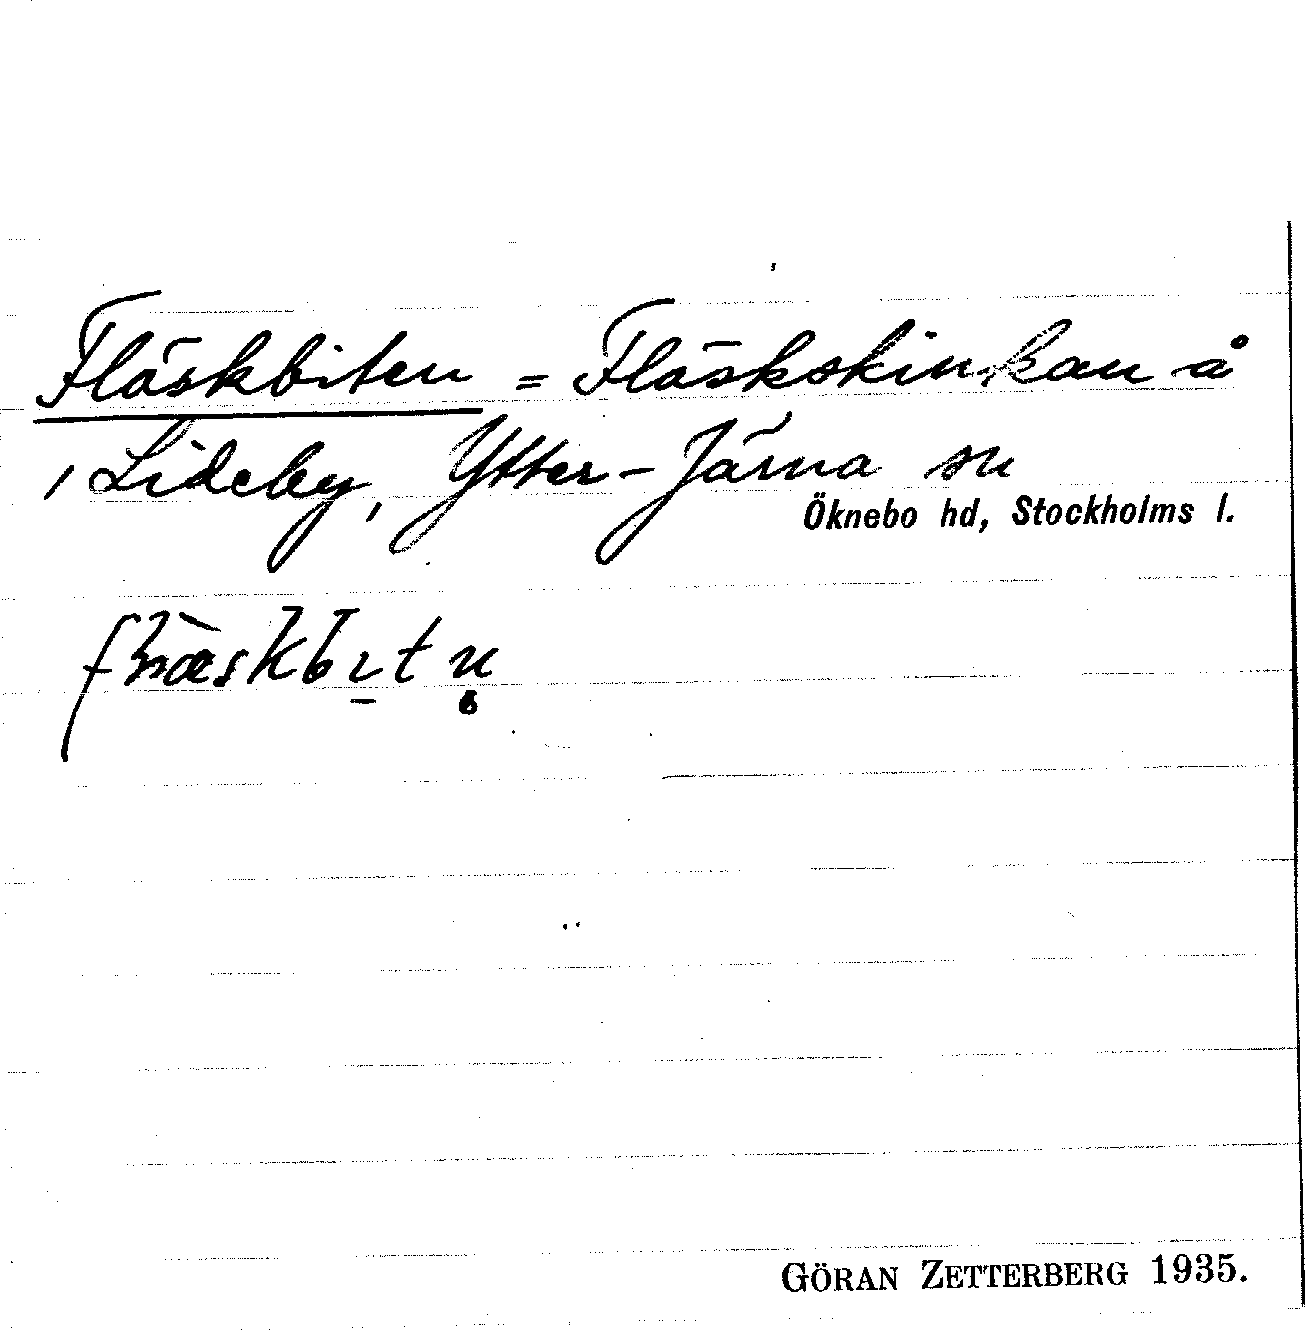 Fläskbiten = Fläskskinkan å
/ Lideby, Ytter-Järna sn
Öknebo hd, Stockholms l.
GÖRAN ZETTERBERG 1935.